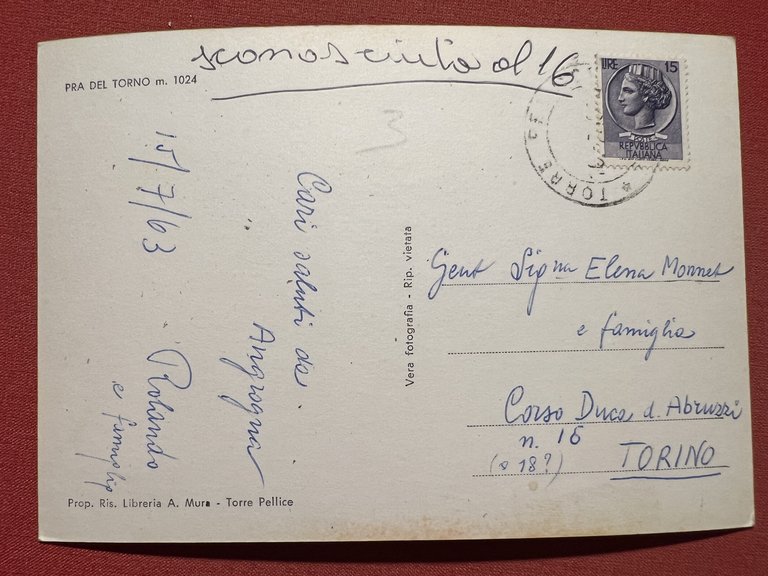 sconosciuta al 16
PRA DEL TORNO m. 1024
LIRE 15
POSTE
REPVBBLICA
ITALIANA
TORRE
3
15/7/63
Cari saluti da
Angrogna
Rolando
e famiglia
Vera fotografia - Rip. vietata
Gent Sig.na Elena Monnet
e famiglia
Corso Duca d. Abruzzi
n. 16
(o 18?)
TORINO
Prop. Ris. Libreria A. Mura - Torre Pellice